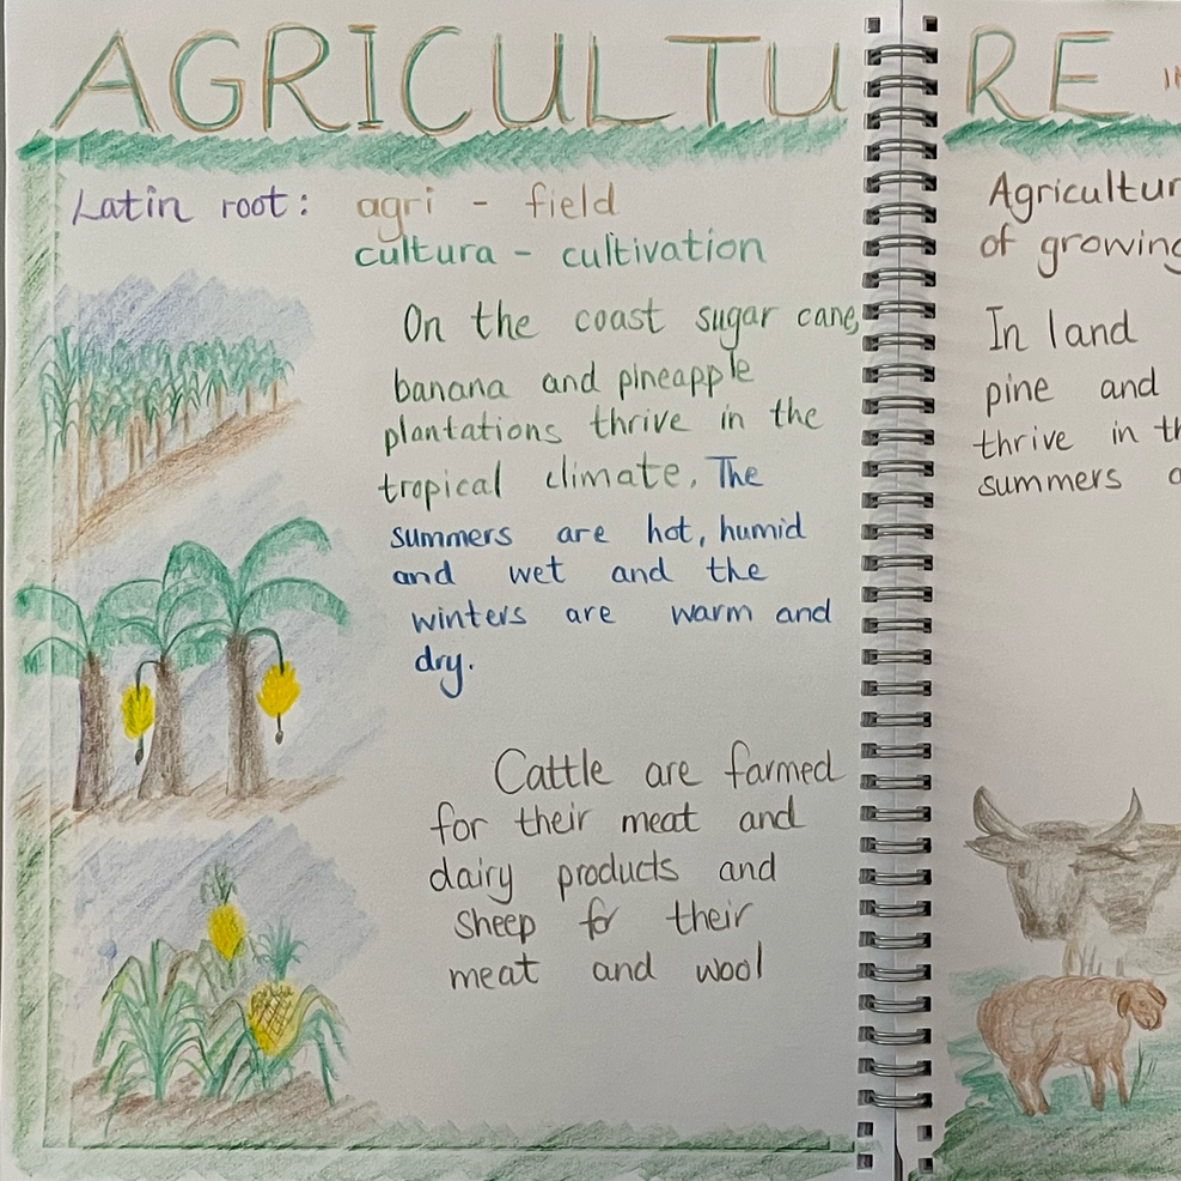 AGRICULTURE
Latin root: agri - field
cultura - cultivation
On the coast sugar cane,
banana and pineapple
plantations thrive in the
tropical climate. The
summers are hot, humid
and wet and the
winters are warm and
dry.
Cattle are farmed
for their meat and
dairy products and
sheep for their
meat and wool
Agricultur
of growing
In land
pine and
thrive in th
summers